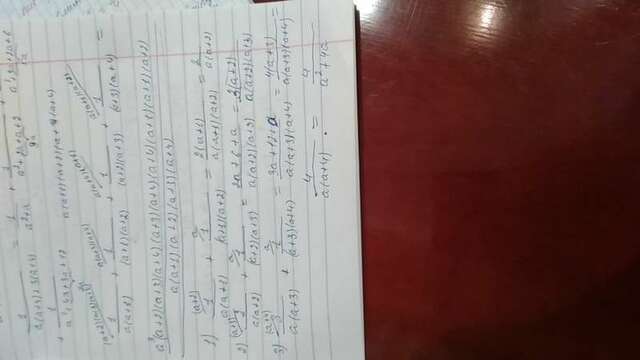 1/(a(a+3)+3(a+3)) = 1/(a²+a) + 1/(a²+2a+a+2) + 1/(a²+3a+2a+6)
3a 5a
+ 1/(a²+4a+3a+12) a(a+1)(a+2)(a+3)(a+4)
7a
1/(a(a+1)) + 1/((a+1)(a+2)) + 1/((a+2)(a+3)) + 1/((a+3)(a+4)) =
a³(a+2)(a+3)(a+4)(a+3)(a+4)(a+4)(a+1)(a+1)(a+2)
a(a+1)(a+2)(a+3)(a+4)
1) (a+2) 1/(a(a+1)) + a 1/((a+1)(a+2)) = 2(a+1)/(a(a+1)(a+2)) = 2/(a(a+2))
2) (a+3) 2/(a(a+2)) + a 1/((a+2)(a+3)) = (2a+6+a)/(a(a+2)(a+3)) = 3(a+2)/(a(a+2)(a+3))
3) (a+4) 3/(a(a+3)) + a 1/((a+3)(a+4)) = (3a+12+a)/(a(a+3)(a+4)) = 4(a+3)/(a(a+3)(a+4)) =
4/(a(a+4)) = 4/(a²+4a)